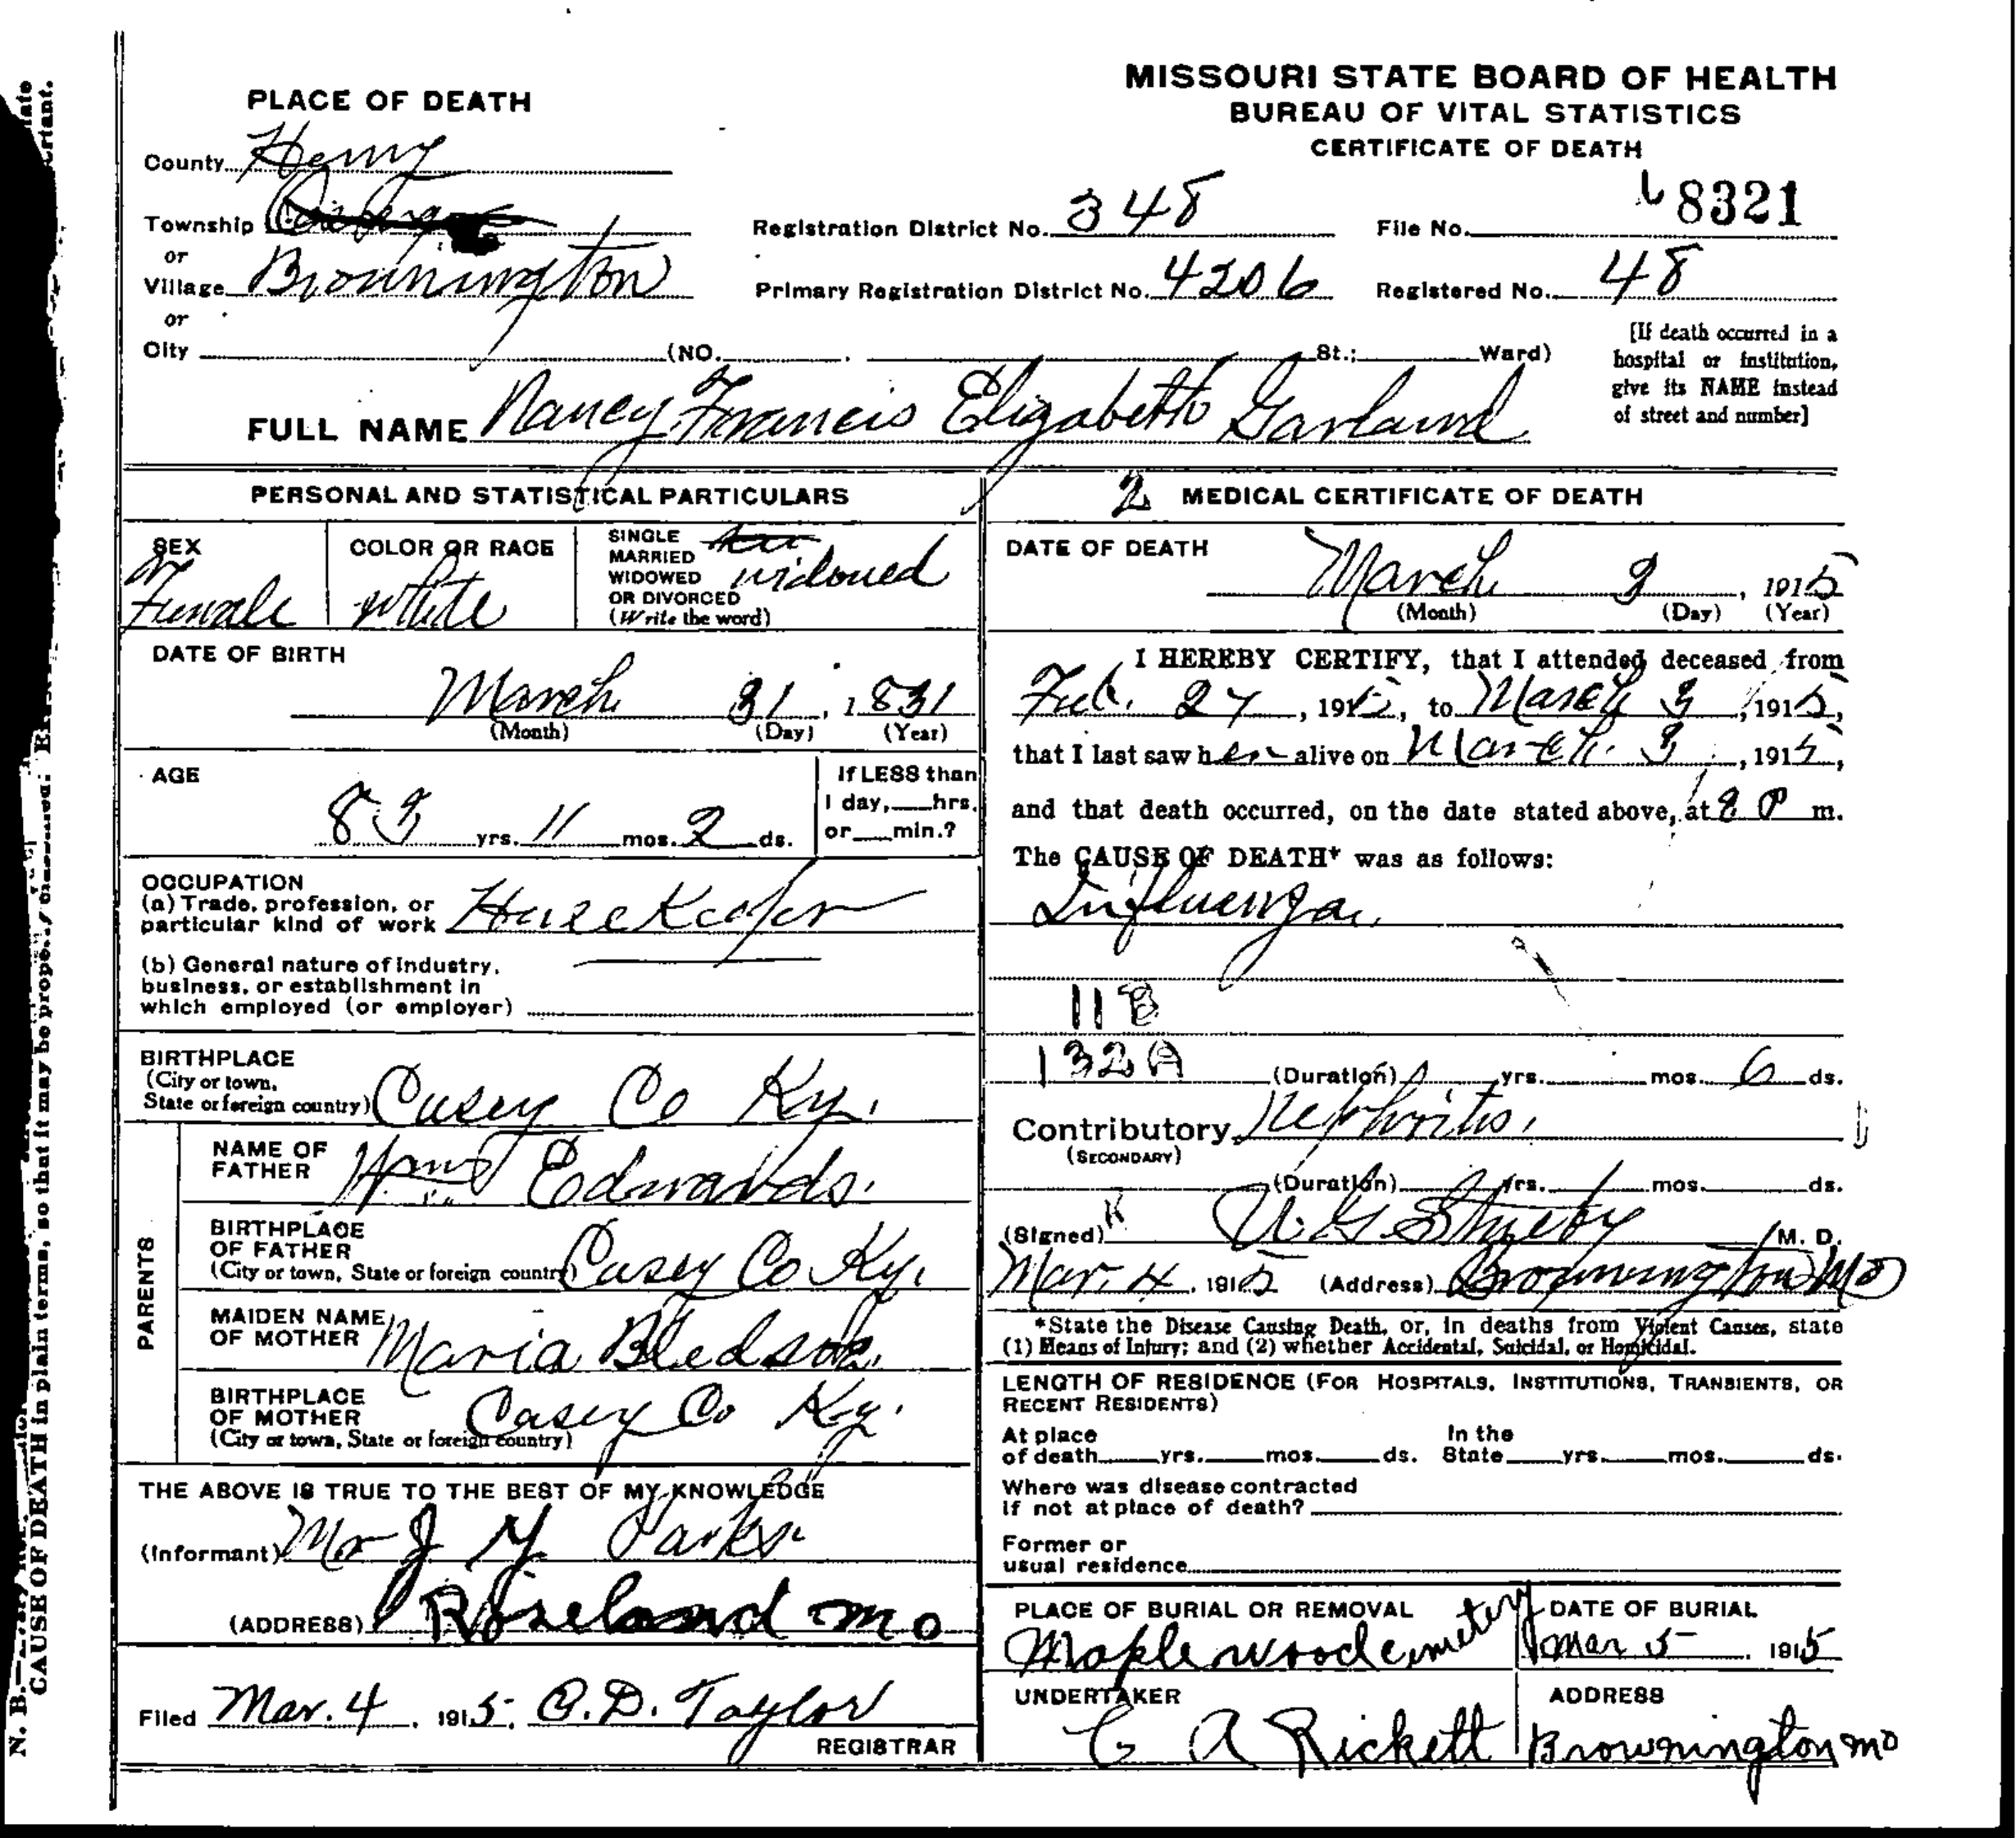 MISSOURI STATE BOARD OF HEALTH
BUREAU OF VITAL STATISTICS
CERTIFICATE OF DEATH
PLACE OF DEATH
County Henry
Township
or
Village Brownington
or
City (NO. St.; Ward)
Registration District No. 348
File No. 8321
Primary Registration District No. 4206
Registered No. 48
[If death occurred in a
hospital or institution,
give its NAME instead
of street and number]
FULL NAME Nancy Francis Elizabeth Garland
PERSONAL AND STATISTICAL PARTICULARS
SEX
Female
COLOR OR RACE
White
SINGLE
MARRIED
WIDOWED
OR DIVORCED
(Write the word)
widowed
DATE OF BIRTH
March 31, 1831
(Month) (Day) (Year)
AGE
83 yrs. 11 mos. 2 ds.
If LESS than
1 day, hrs.
or min.?
OCCUPATION
(a) Trade, profession, or
particular kind of work House Keeper
(b) General nature of industry,
business, or establishment in
which employed (or employer)
BIRTHPLACE
(City or town,
State or foreign country) Casey Co Ky.
PARENTS
NAME OF
FATHER Edwards.
BIRTHPLACE
OF FATHER
(City or town, State or foreign country) Casey Co Ky.
MAIDEN NAME
OF MOTHER Maria Bledsoe.
BIRTHPLACE
OF MOTHER
(City or town, State or foreign country) Casey Co Ky.
THE ABOVE IS TRUE TO THE BEST OF MY KNOWLEDGE
(Informant) Mr J M Parks
(ADDRESS) Roseland Mo
Filed Mar. 4, 1915, C.D. Taylor
REGISTRAR
2 MEDICAL CERTIFICATE OF DEATH
DATE OF DEATH
March 3, 1915
(Month) (Day) (Year)
I HEREBY CERTIFY, that I attended deceased from
Feb. 27, 1915, to March 3, 1915,
that I last saw her alive on March. 3, 1915,
and that death occurred, on the date stated above, at 8 P m.
The CAUSE OF DEATH* was as follows:
Influenza
11 B
132A
(Duration) yrs. mos. 6 ds.
Contributory Nephritis.
(SECONDARY)
(Duration) yrs. mos. ds.
(Signed) M. D.
Mar. 4, 1915 (Address) Brownington Mo
*State the Disease Causing Death, or, in deaths from Violent Causes, state
(1) Means of Injury; and (2) whether Accidental, Suicidal, or Homicidal.
LENGTH OF RESIDENCE (FOR HOSPITALS, INSTITUTIONS, TRANSIENTS, OR
RECENT RESIDENTS)
At place
of death yrs. mos. ds.
In the
State yrs. mos. ds.
Where was disease contracted
if not at place of death?
Former or
usual residence
PLACE OF BURIAL OR REMOVAL
Maplewood cemetery
DATE OF BURIAL
Mar 5 1915
UNDERTAKER
C A Rickett
ADDRESS
Brownington Mo
N. B.
CAUSE OF DEATH in plain terms, so that it may be properly classified.